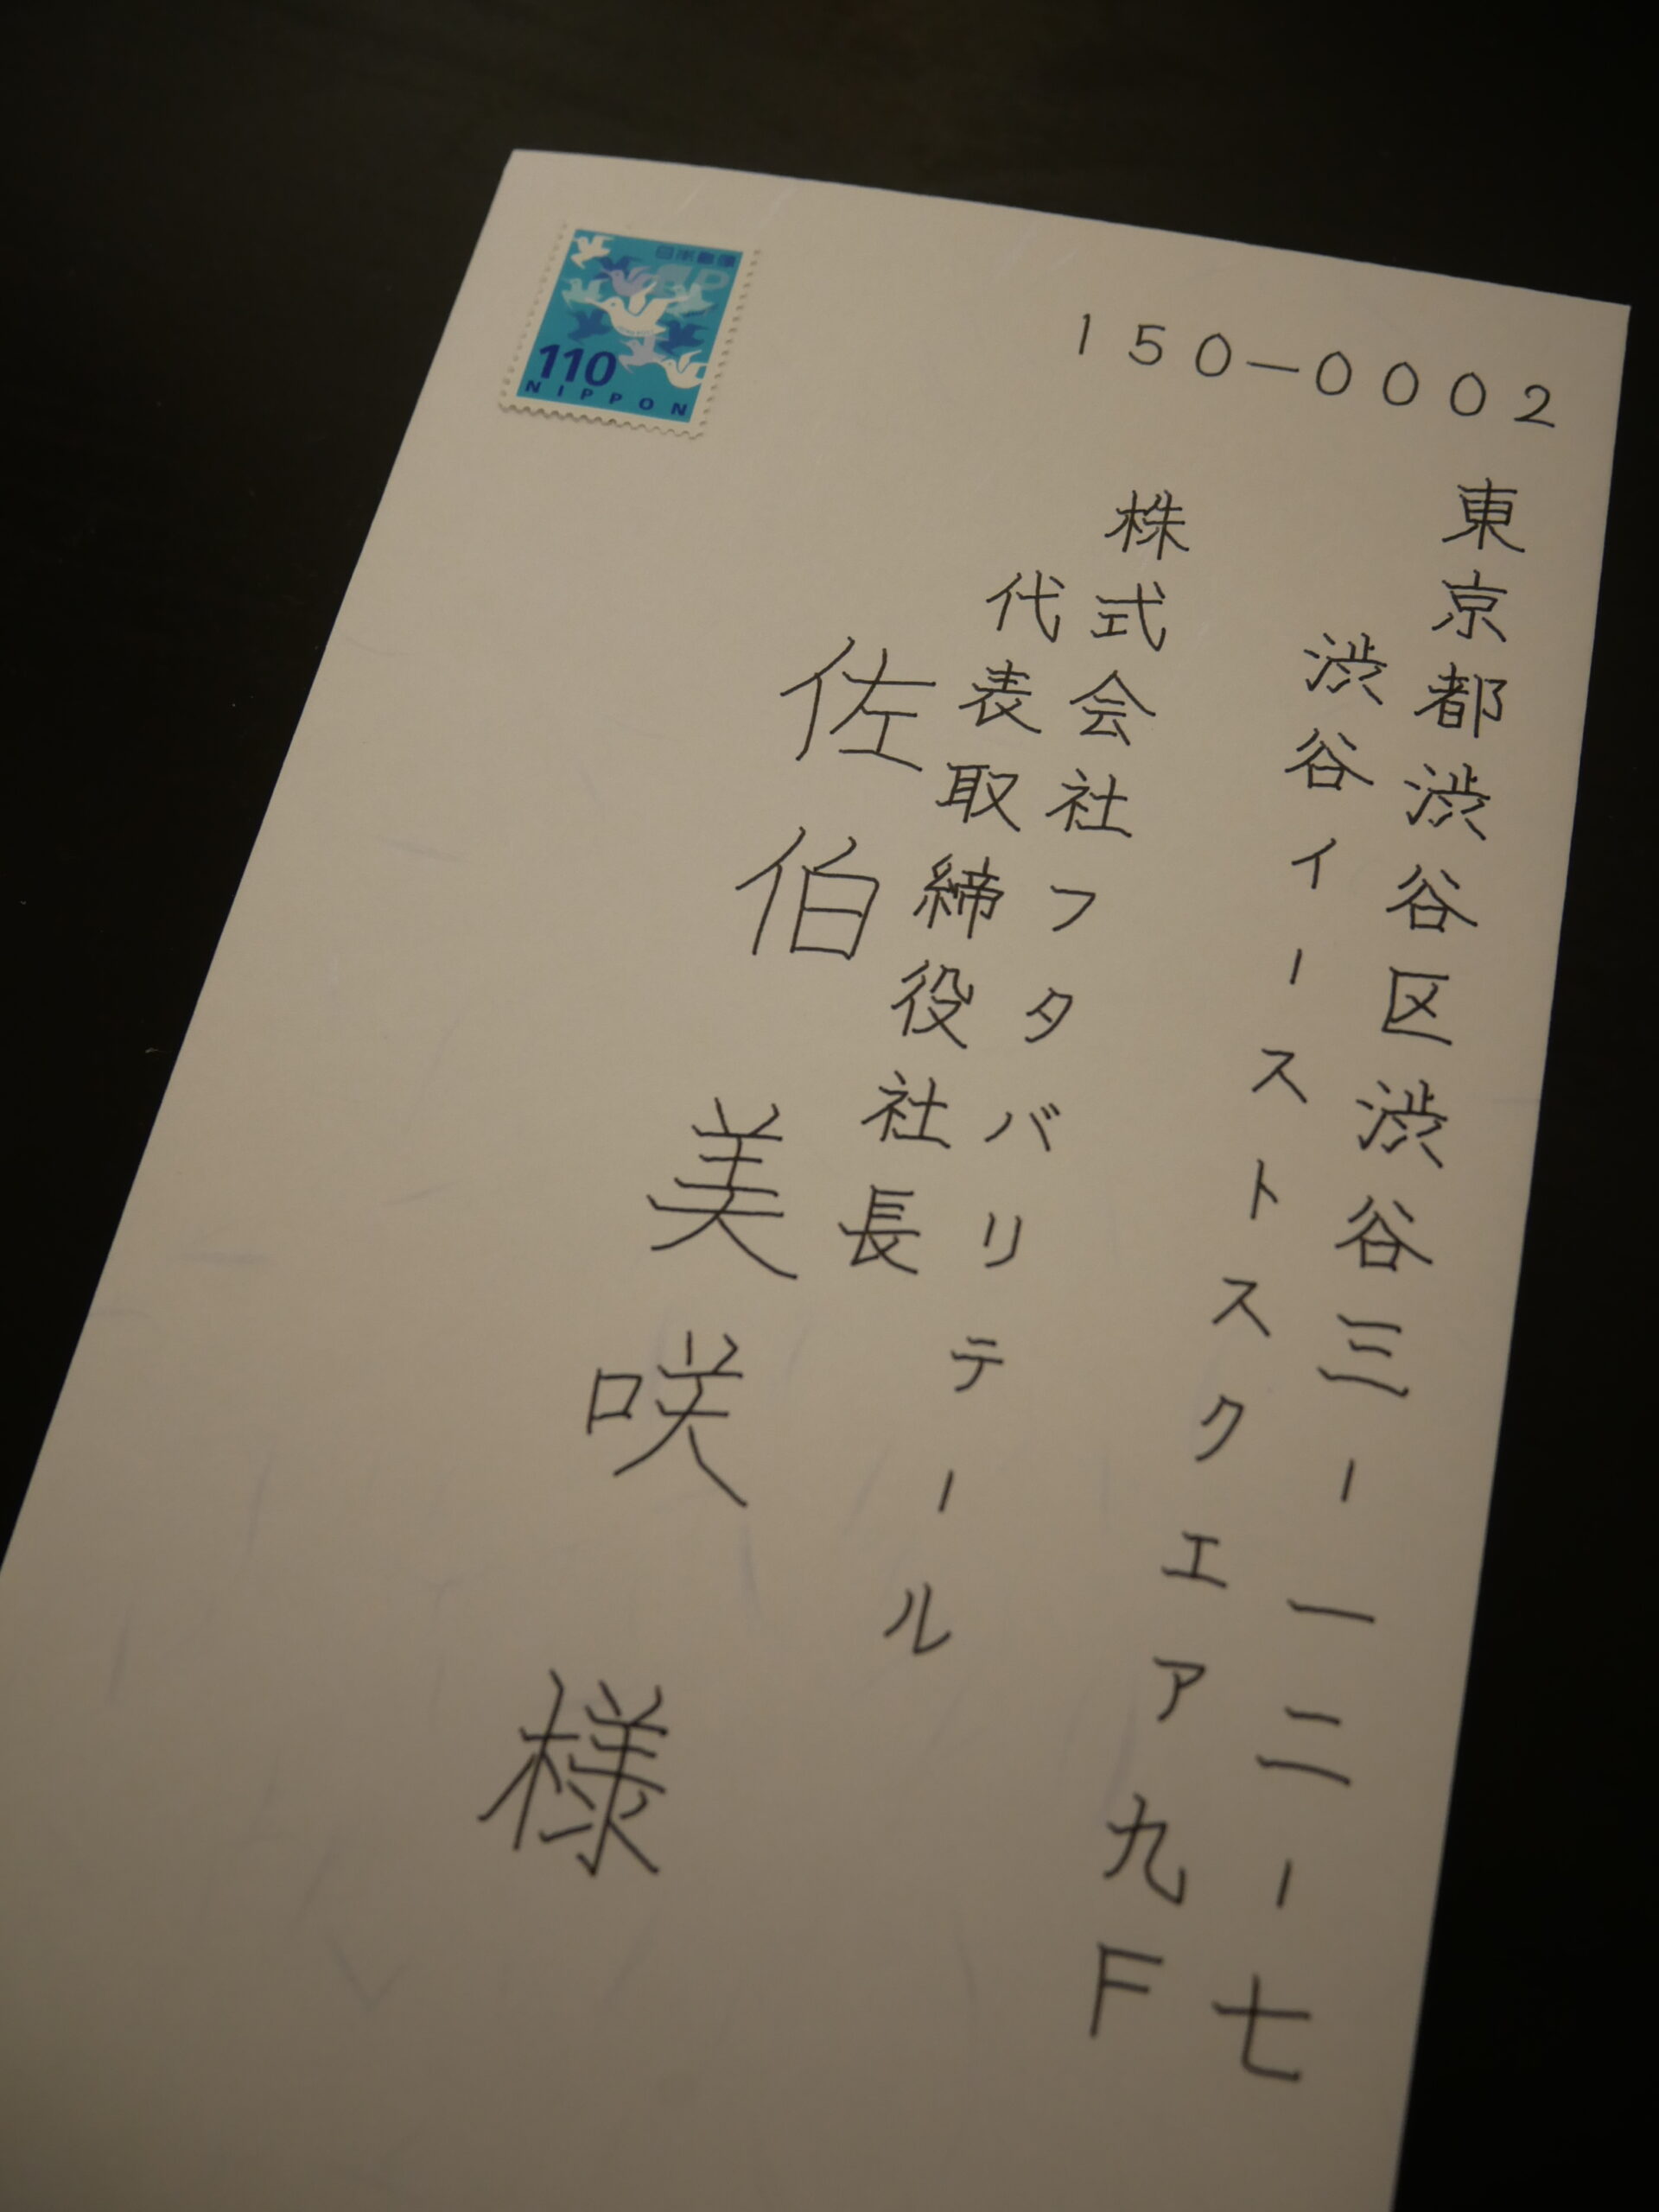 150-0002
東京都渋谷区渋谷三-一二-七
渋谷イーストスクエア九F
株式会社フタバリテール
代表取締役社長
佐伯 美咲 様
日本郵便
110
NIPPON